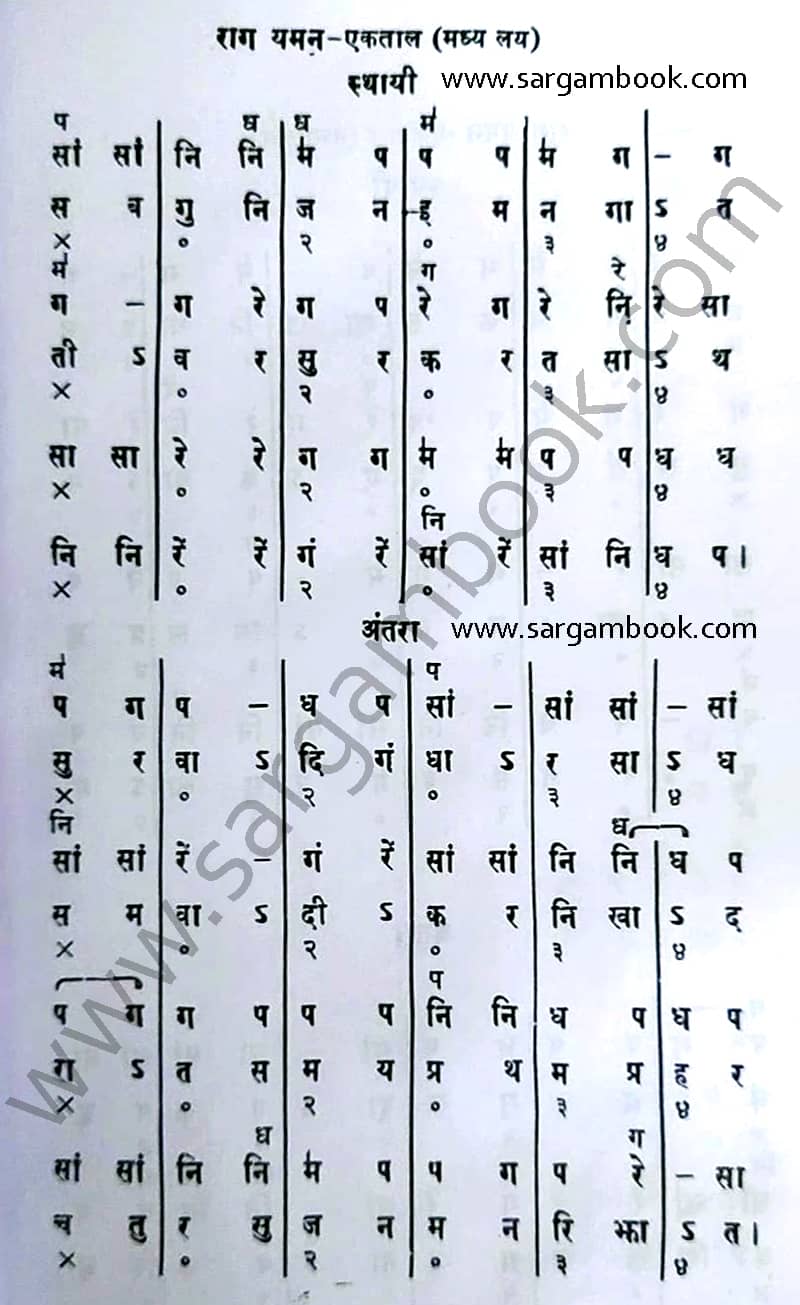 राग यमन-एकताल (मध्य लय)
स्थायी www.sargambook.com
प ध ध म॑
सां सां नि नि म॑ प प प म॑ ग – ग
स ब गु नि ज न –इ म न गा ऽ त
× ० २ ० ३ ४
म॑ ग रे
ग – ग रे ग प रे ग रे नि़ रे सा
ती ऽ व र सु र क र त सा ऽ थ
× ० २ ० ३ ४
सा सा रे रे ग ग म॑ म॑ प प ध ध
× ० २ ० ३ ४
नि
नि नि रें रें गं रें सां रें सां नि ध प।
× ० २ ० ३ ४
अंतरा www.sargambook.com
म॑ प
प ग प – ध प सां – सां सां – सां
सु र वा ऽ दि गं धा ऽ र सा ऽ ध
× ० २ ० ३ ४
नि ध
सां सां रें – गं रें सां सां नि नि ध प
स म वा ऽ दी ऽ क र नि खा ऽ द
× ० २ ० ३ ४
प
प ग ग प प प नि नि ध प ध प
रा ऽ त स म य प्र थ म प्र ह र
× ० २ ० ३ ४
ध ग
सां सां नि नि म॑ प प ग प रे – सा
च तु र सु ज न म न रि झा ऽ त।
× ० २ ० ३ ४
www.sargambook.com